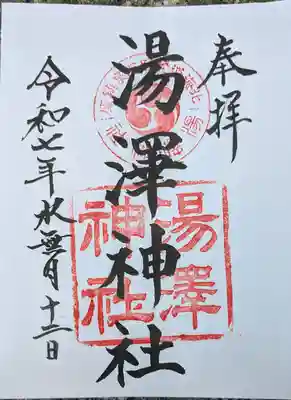 奉拝
湯澤神社
湯澤
神社
令和七年水無月十二日